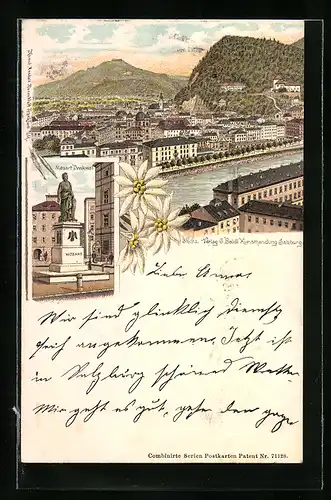 Mozart Denkmal
MOZART
Verlag Kunsthandlung Salzburg
Liebe Anna.
Wir sind glücklich Dienstg
früh angekommen. Jetzt ist
in Salzburg schönes Wetter
Mir geht es gut, gehe den ganze
Combinirte Serien Postkarten Patent Nr. 71128.